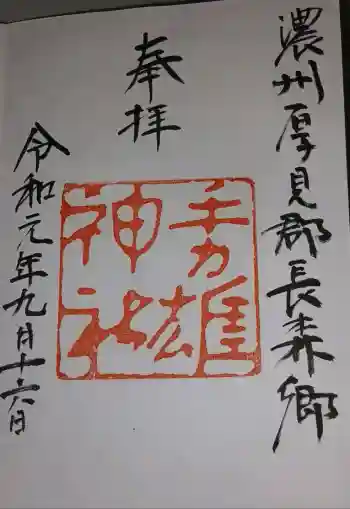 濃州厚見郡長森郷
奉拝
手力雄
神社
令和元年九月十六日